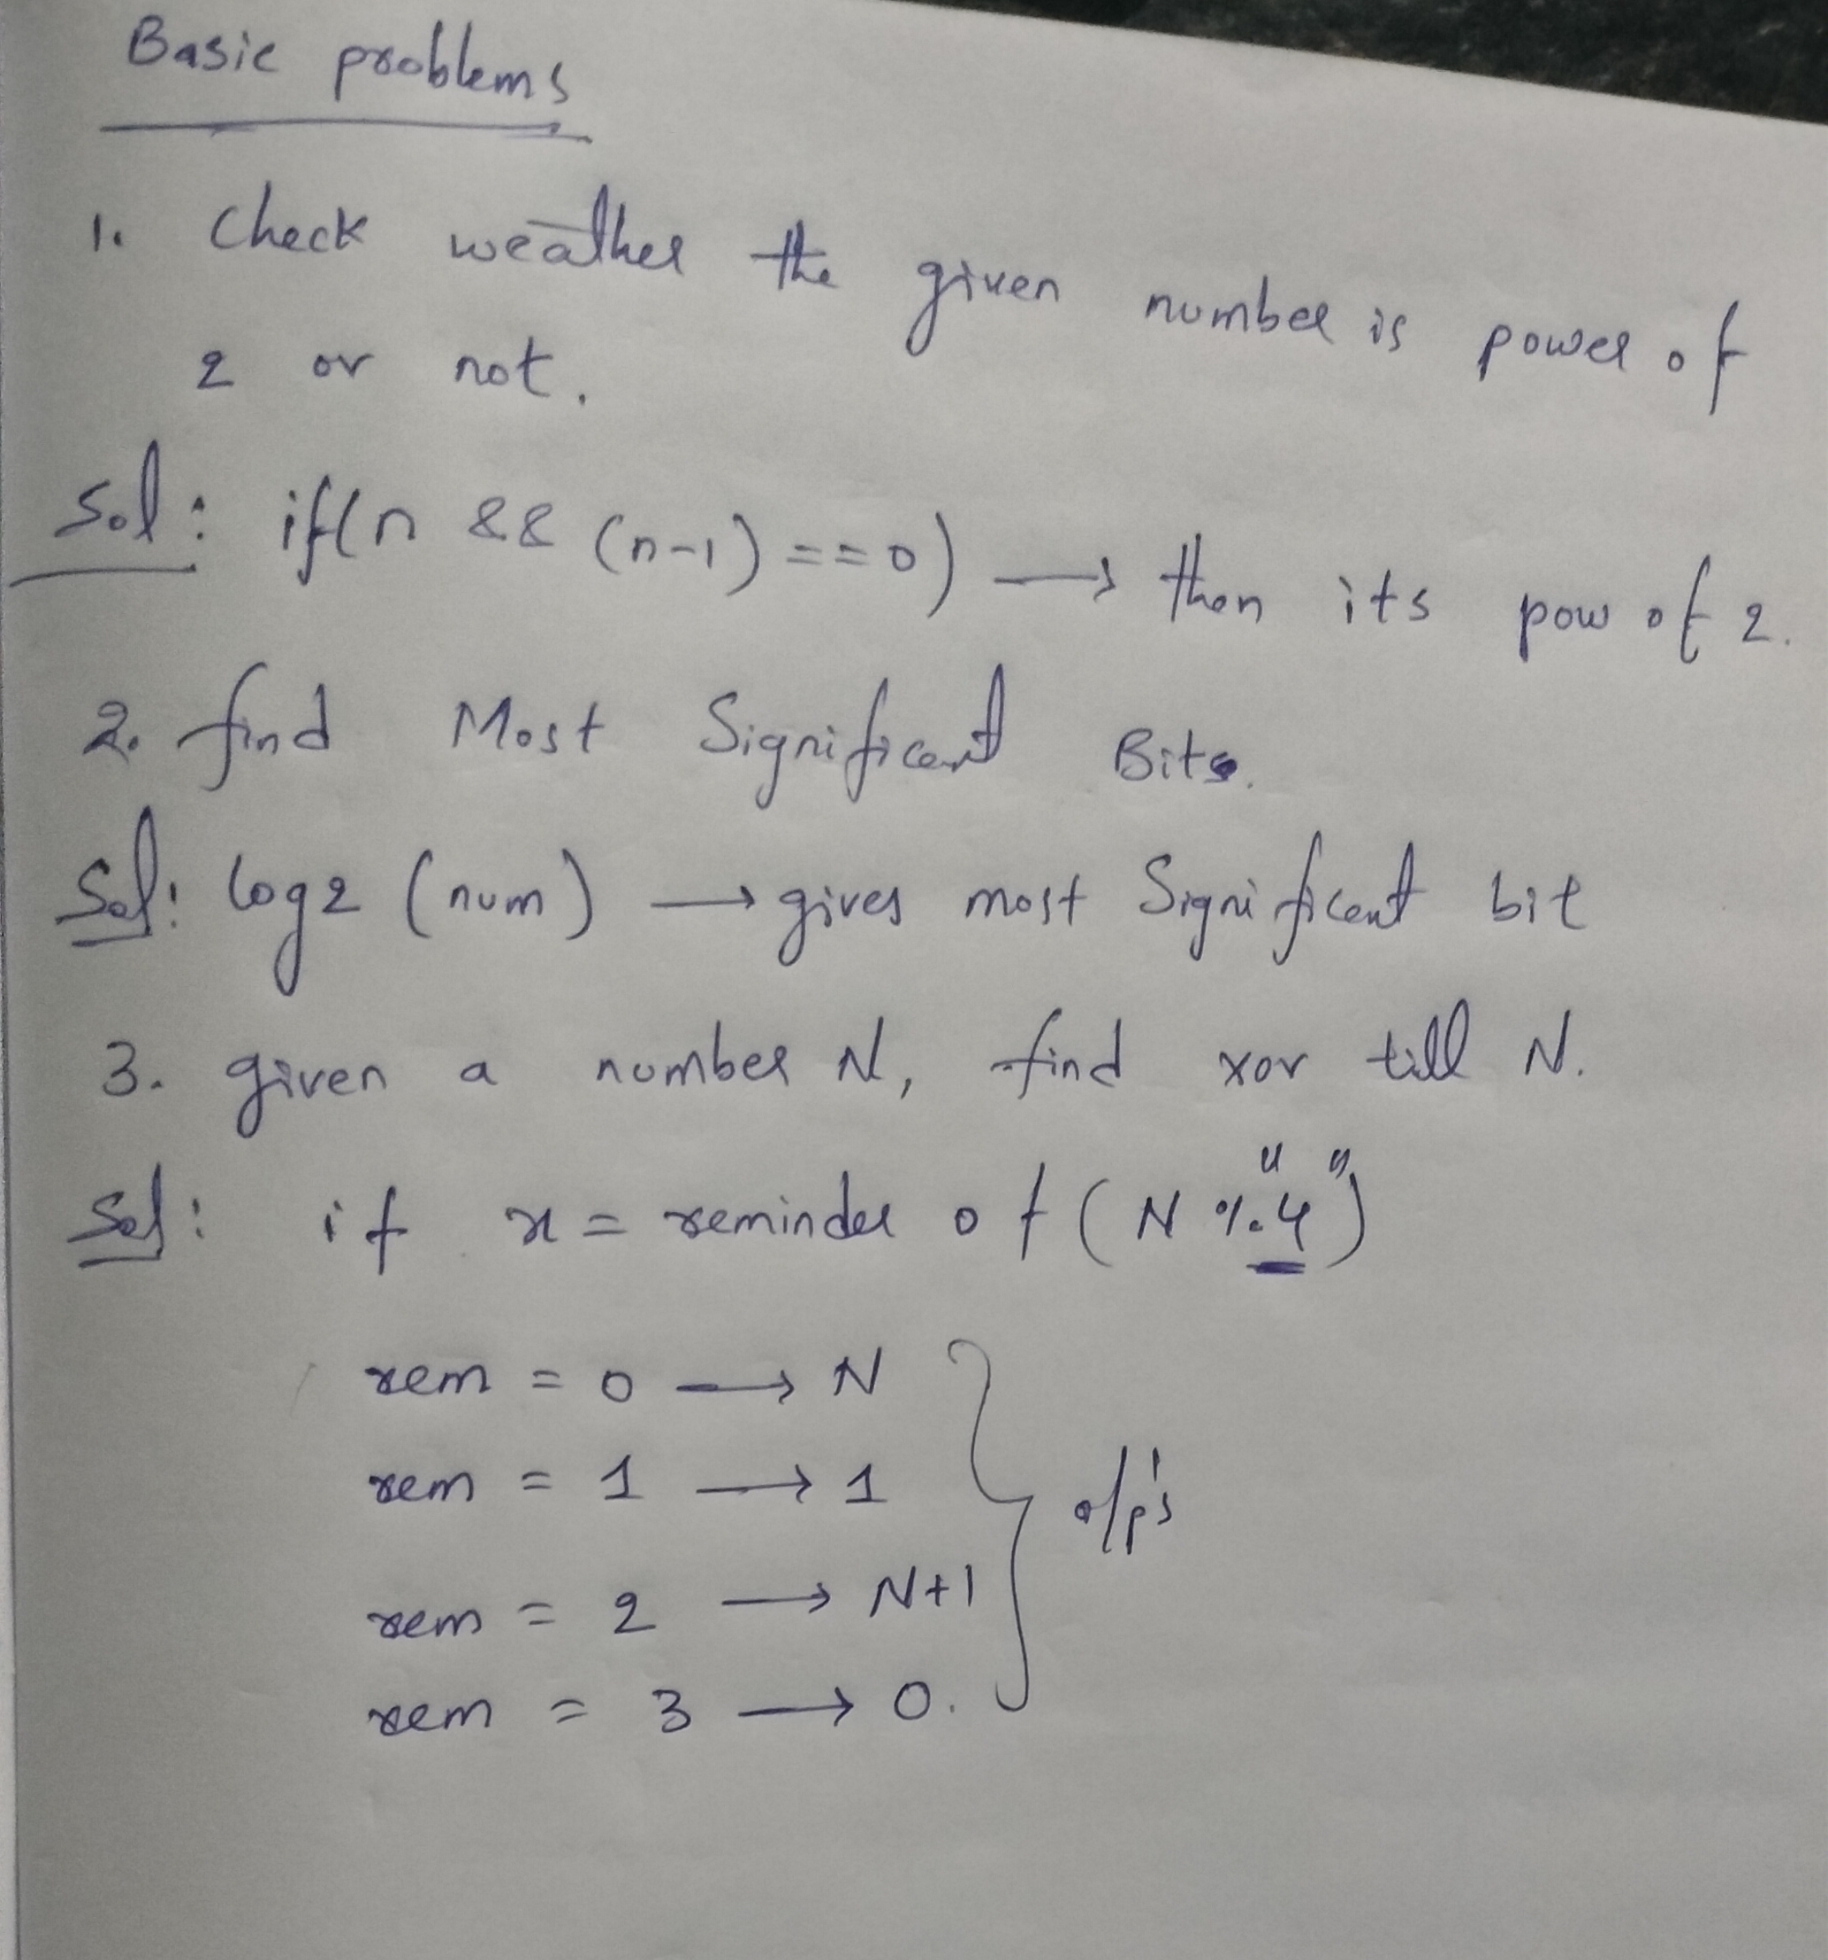 Basic problems
1. Check weather the given number is power of
2 or not.
Sol: if(n && (n-1)==0) → then its pow of 2.
2. find Most Significant Bits.
Sol: log2 (num) → gives most Significant bit
3. given a number N, find xor till N.
Sol: if x = reminder of (N %"4")
rem = 0 → N
rem = 1 → 1
o/p's
rem = 2 → N+1
rem = 3 → 0.